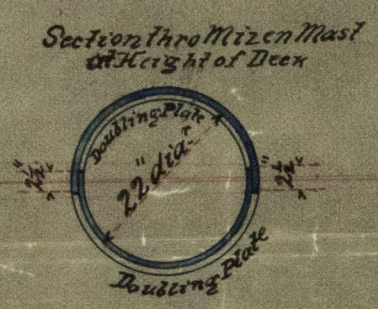 Section thro Mizen Mast
at Height of Deck
Doubling Plate
22" dia.
2½"
2½"
Doubling Plate